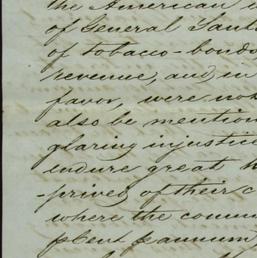 the American
of General Sant
of tobacco-bonds
revenue, and in
favor, were not
also be mention
glaring injustice
endure great h
-prived of their c
where the comm
p Cent p annum,